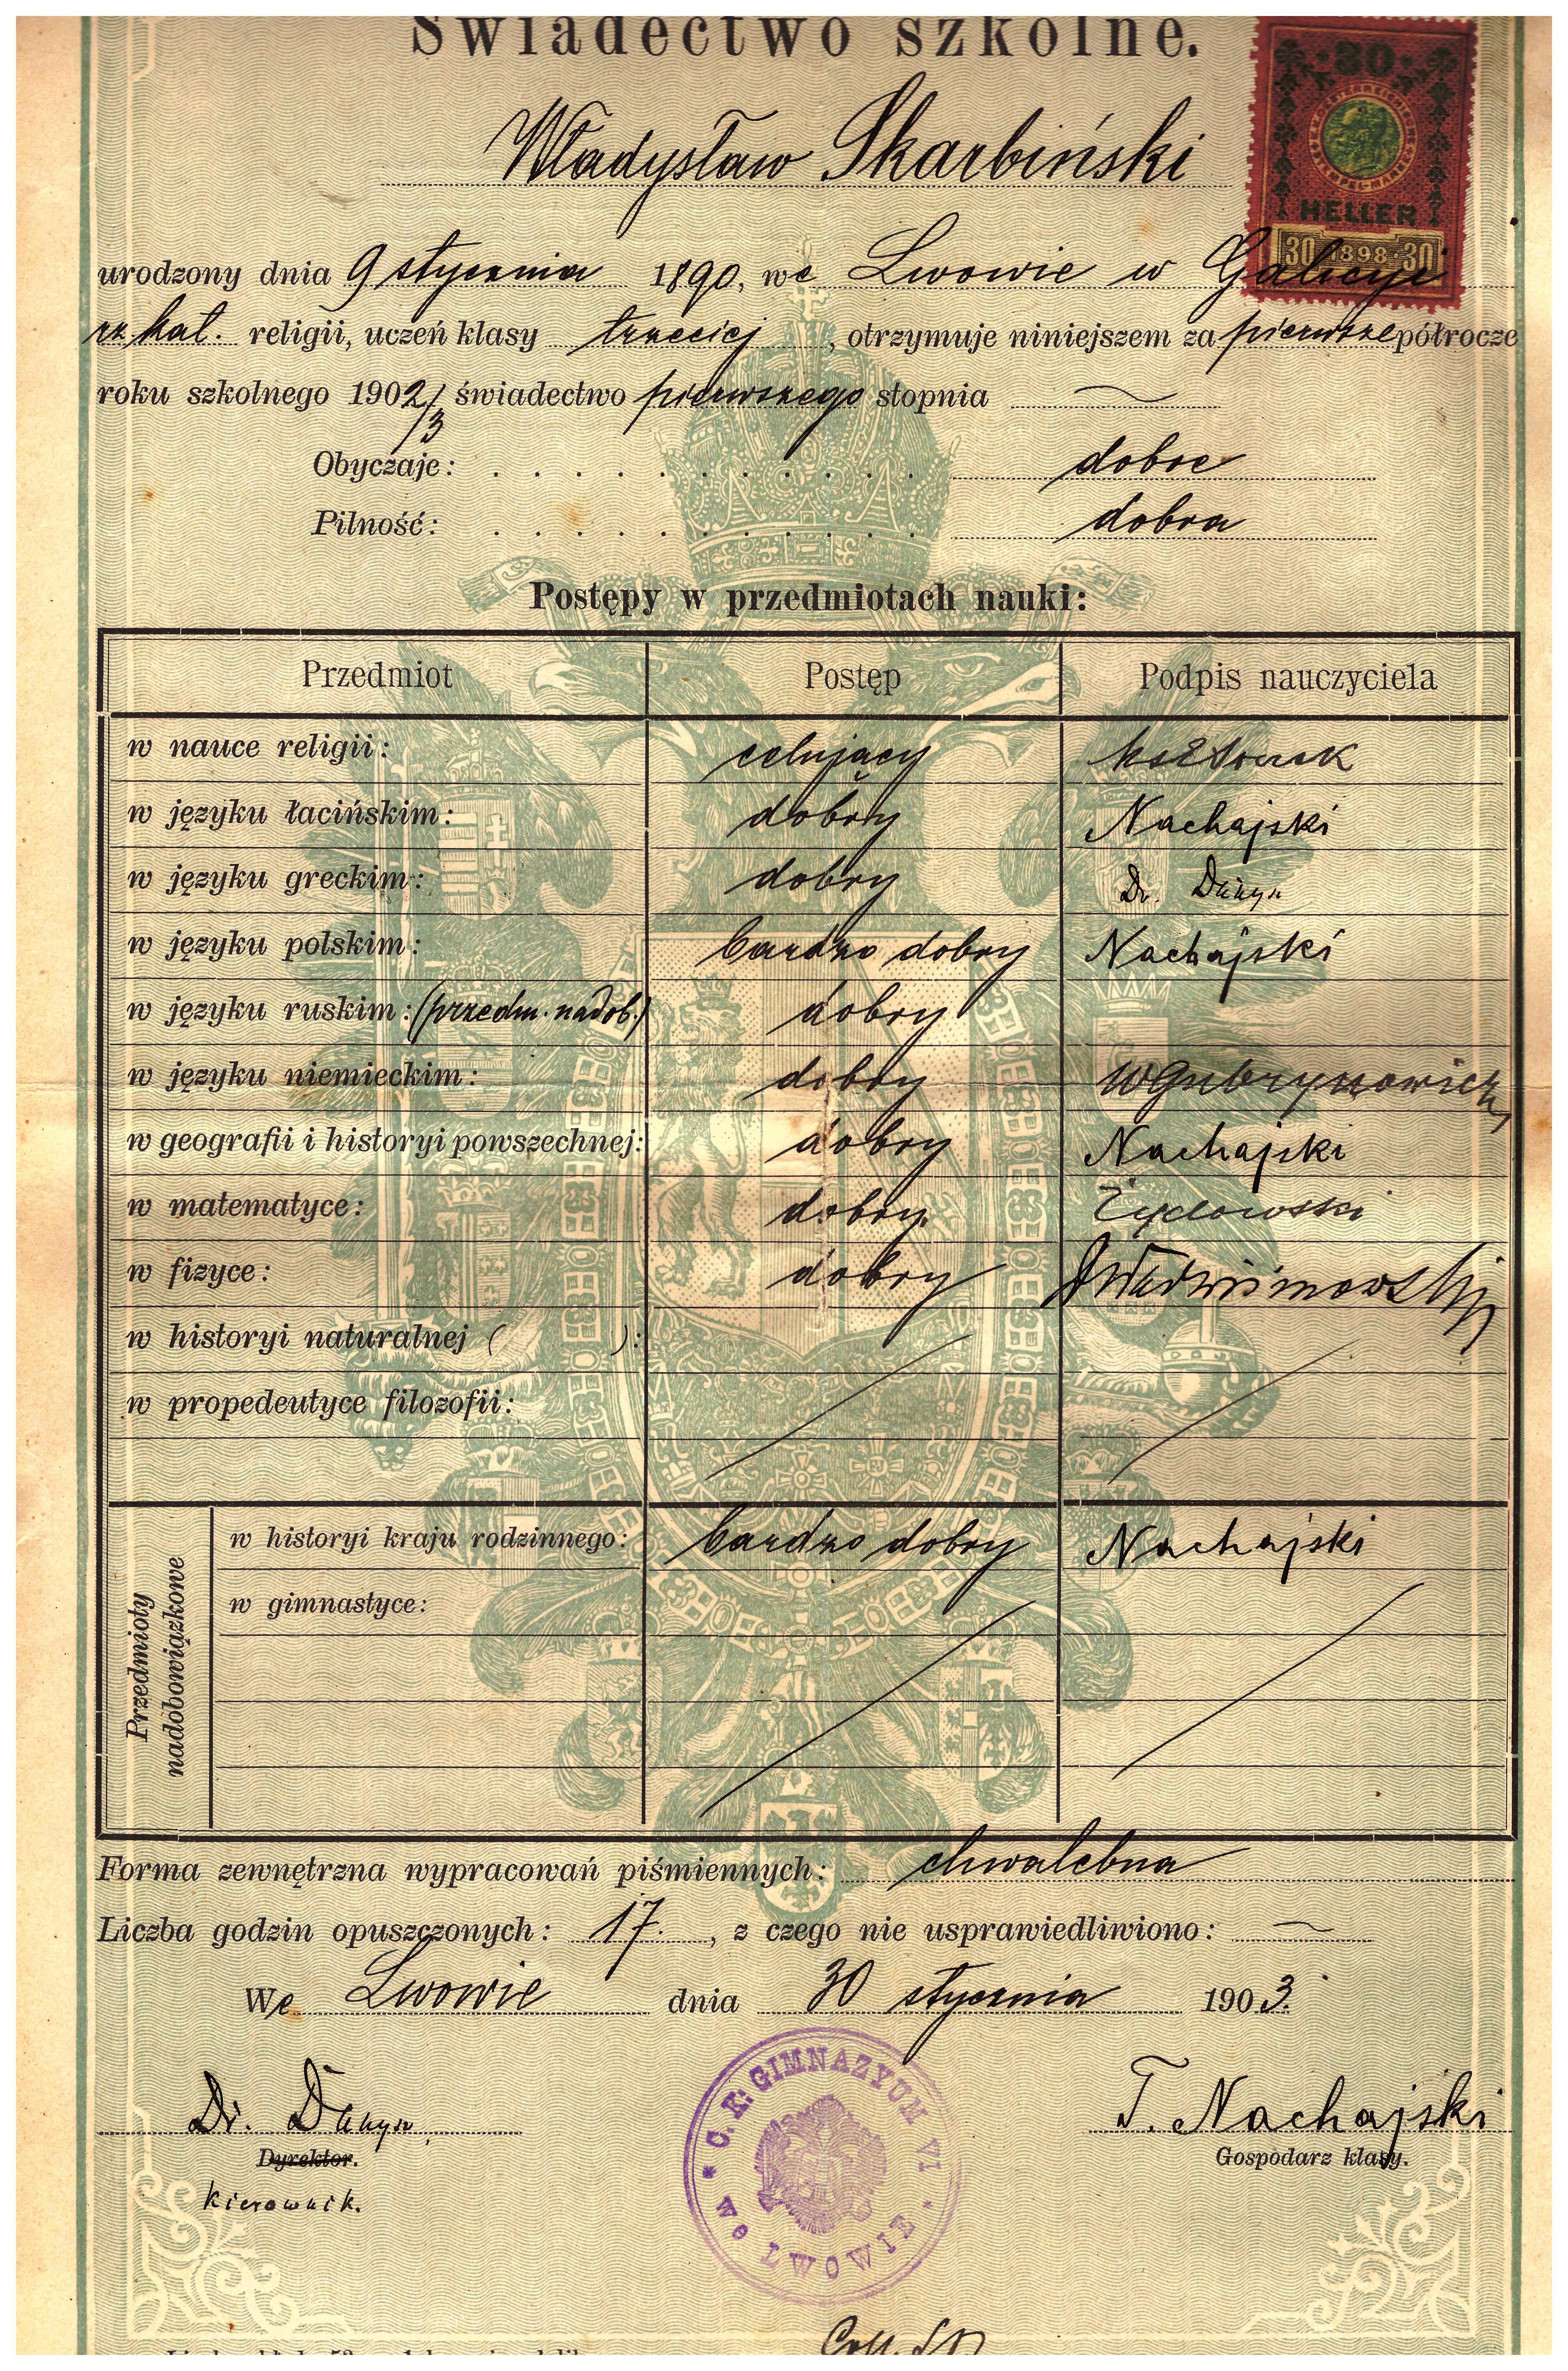 Świadectwo szkolne.
80
HELLER
30 1898 30
Władysław Skarbiński
urodzony dnia 9 stycznia 1890, we Lwowie w Galicyi
rz. kat. religii, uczeń klasy trzeciej, otrzymuje niniejszem za pierwsze półrocze
roku szkolnego 1902/3 świadectwo pierwszego stopnia
Obyczaje: dobre
Pilność: dobra
Postępy w przedmiotach nauki:
Przedmiot Postęp Podpis nauczyciela
w nauce religii: celujący
w języku łacińskim: dobry Nachajski
w języku greckim: dobry Dr. Dunyn
w języku polskim: bardzo dobry Nachajski
w języku ruskim: (przedm. nadob.) dobry
w języku niemieckim: dobry WGubrynowicz
w geografii i historyi powszechnej: dobry Nachajski
w matematyce: dobry. Żydowski
w fizyce: dobry
w historyi naturalnej ( ):
w propedeutyce filozofii:
Przedmioty nadobowiązkowe
w historyi kraju rodzinnego: bardzo dobry Nachajski
w gimnastyce:
Forma zewnętrzna wypracowań piśmiennych: chwalebna
Liczba godzin opuszczonych: 17., z czego nie usprawiedliwiono:
We Lwowie dnia 30 stycznia 1903.
Dr. Dunyn T. Nachajski
Dyrektor. Gospodarz klasy.
kierownik.
* C. K. GIMNAZYUM VI * we LWOWIE